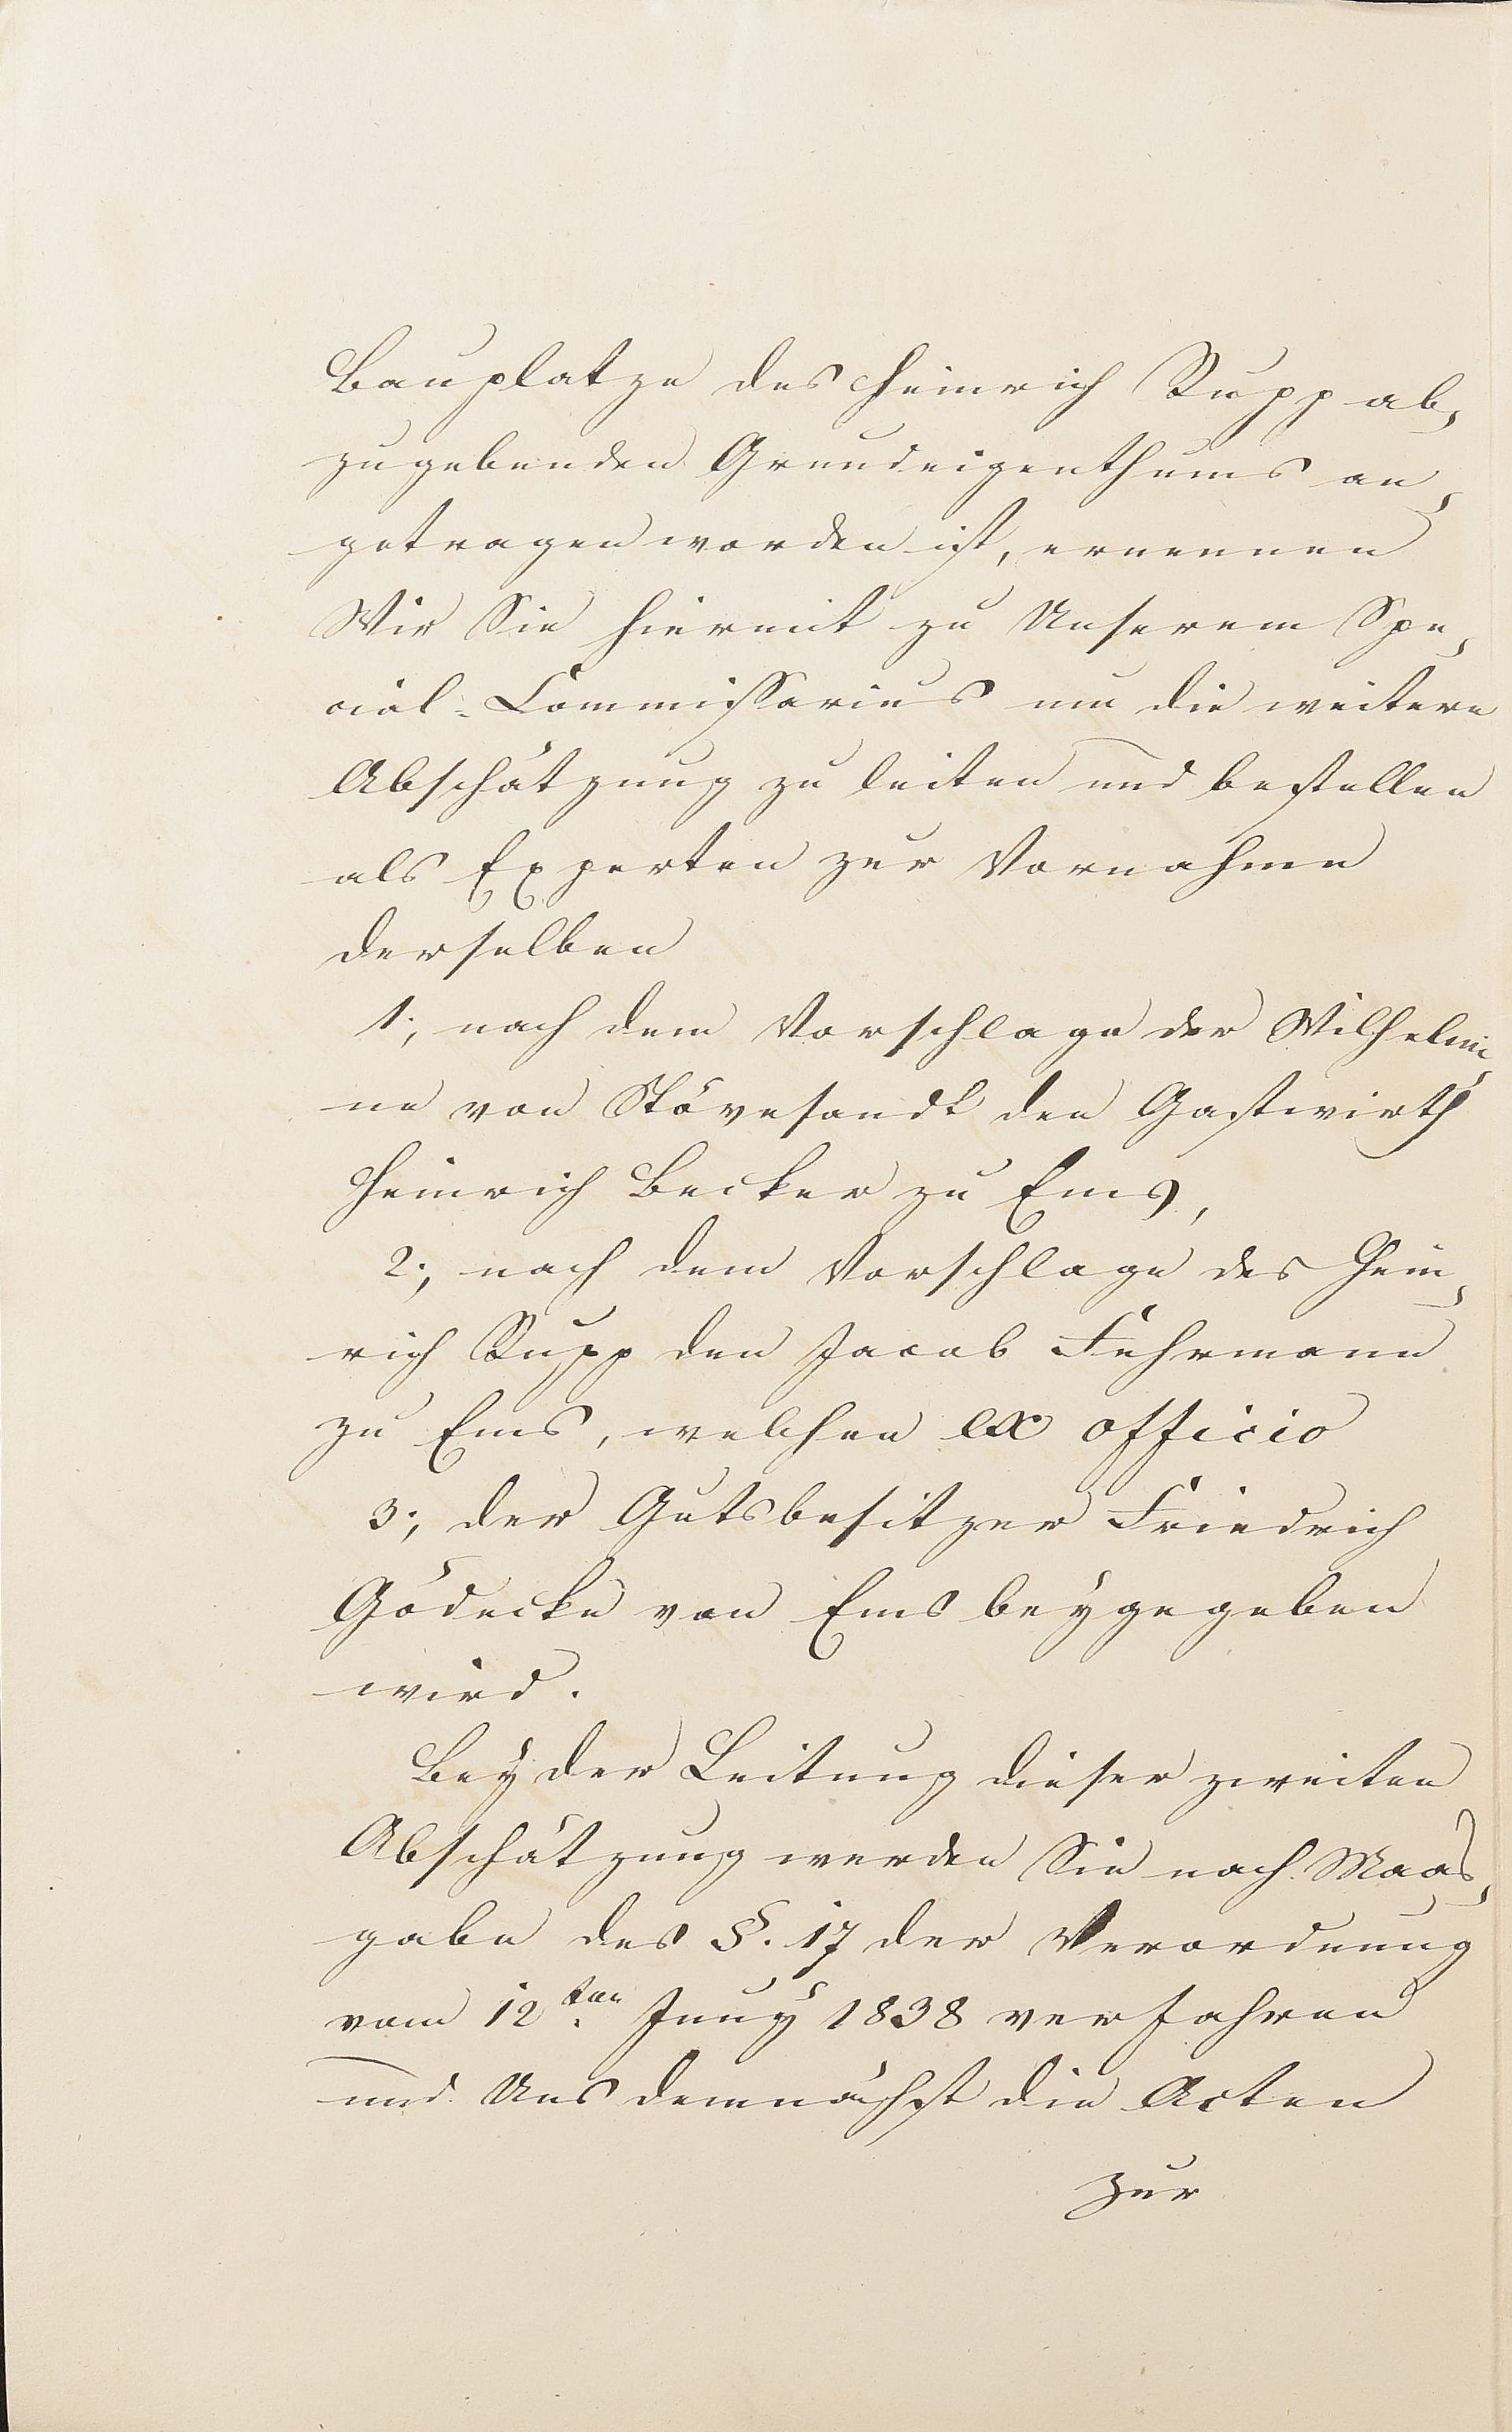 Bauplatze des Heinrich Rupp ab,
zugebenden Grundeigenthums an,
getragen worden ist, ernennen
Wir Sie hiermit zu Unserem Spe,
cial-Commissarius um die weitere
Abschätzung zu leiten und bestellen
als Experten zur Vornahme
derselben
1., nach dem Vorschlage der Wilhelmi,
ne von Stövesandt den Gastwirth
Heinrich Becker zu Ems,
2., nach dem Vorschlage des Hein,
rich Rupp den Jacob Fuhrmann
zu Ems, welchen ex officio
3., der Gutsbesitzer Friedrich
Gödecke von Ems beygegeben
wird.
Bey der Leitung dieser zweiten
Abschätzung werden Sie nach Maas,
gabe des §. 17 der Verordnung
vom 12ten Juny 1838 verfahren
und Uns demnächst die Acten
zur